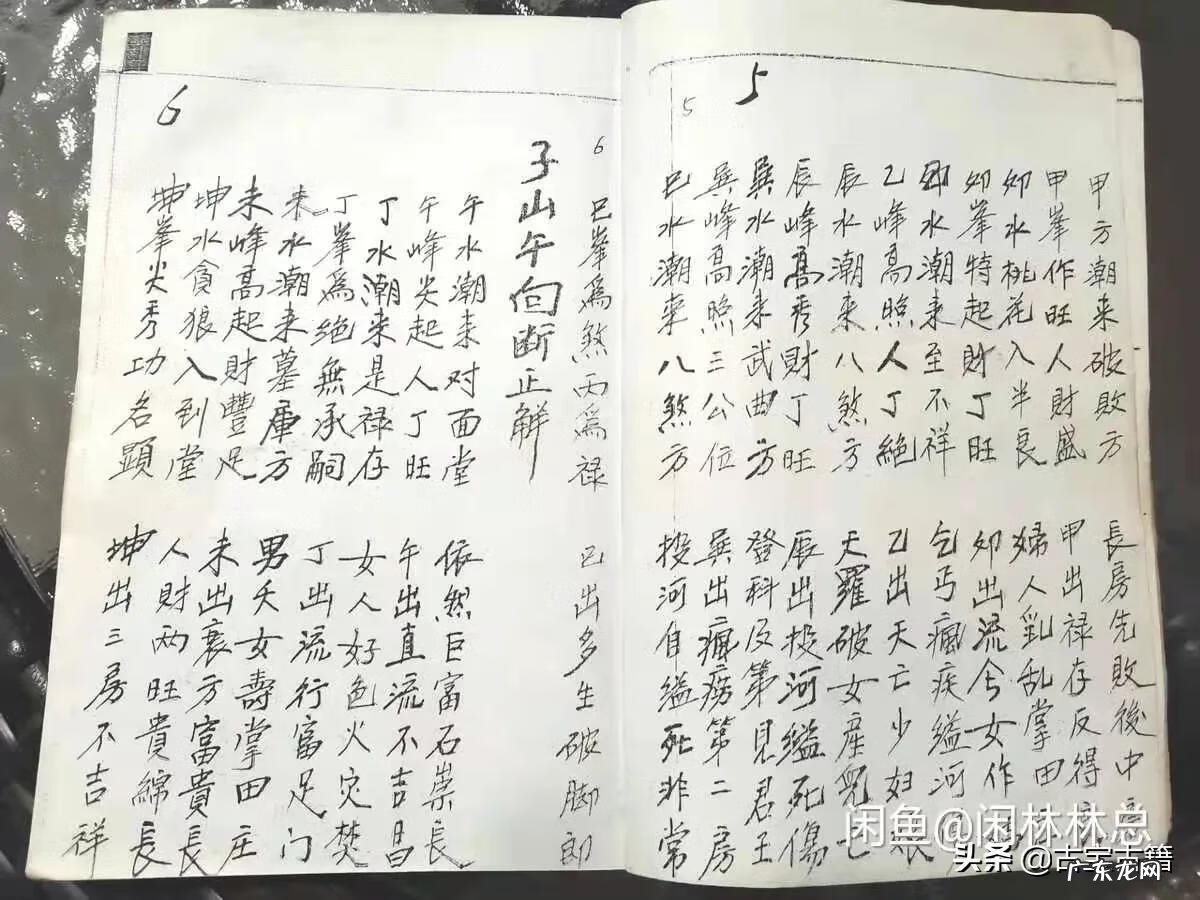 5
5
甲方潮来破敗方 長房先敗後中
甲峯作旺人財盛 甲出禄存反得
卯水桃花入半良 婦人乳乱掌田
卯峯特起財丁旺 卯出流兮女作
卯水潮来至不祥 乞丐瘋疾縊河
乙峰高照人丁絶 乙出天亡少妇
辰水潮来八煞方 天羅破女産兜亡
辰峰高秀財丁旺 辰出投河縊死傷
巽水潮来武曲方 登科及第見君王
巽峰高照三公位 巽出瘋癆第二房
巳水潮来八煞方 投河自縊死非常
6
6
巳峯爲煞丙爲禄 巳出多生破脚郎
子山午向断正解
午水潮来对面堂 依然巨富石崇長
午峰尖起人丁旺 午出直流不吉昌
丁水潮来是禄存 女人好色火灾焚
丁峯爲绝無承嗣 丁出流行富足门
未水潮来墓庫方 男夭女壽掌田庄
未峰高起財豐足 未出衰方富貴長
坤水貪狼入到堂 人財两旺貴綿長
坤峯尖秀功名顕 坤出三房不吉祥
闲鱼@闲林林总
头条@古字古籍
广东龙网